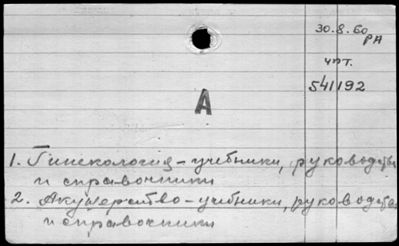 30.8.60
РА
чт.
541192
А
1. Гинекология – учебники, руководства
и справочники
2. Акушерство – учебники, руководства
и справочники